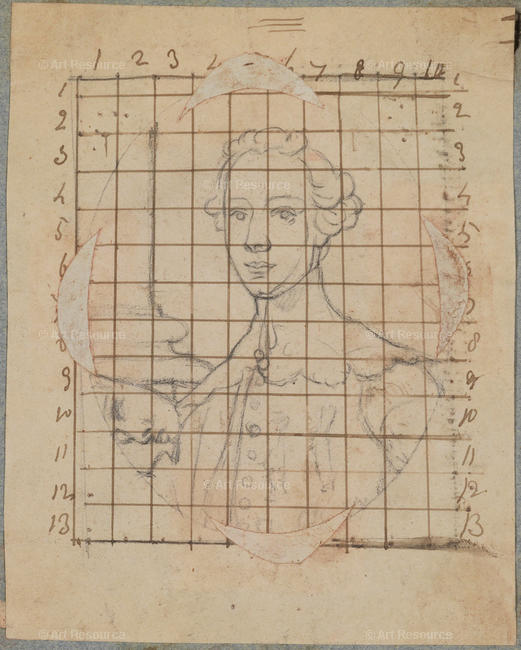 © Art Resource © Art Resource
1 2 3 4 6 7 8 9 10
1 1
2 2
3 3
© Art Resource
4 4
5 5
6 6
© Art Resource © Art Resource
8 8
9 9
10 10
11 11
© Art Resource
12 12
13 13
© Art Resource © Art Resource